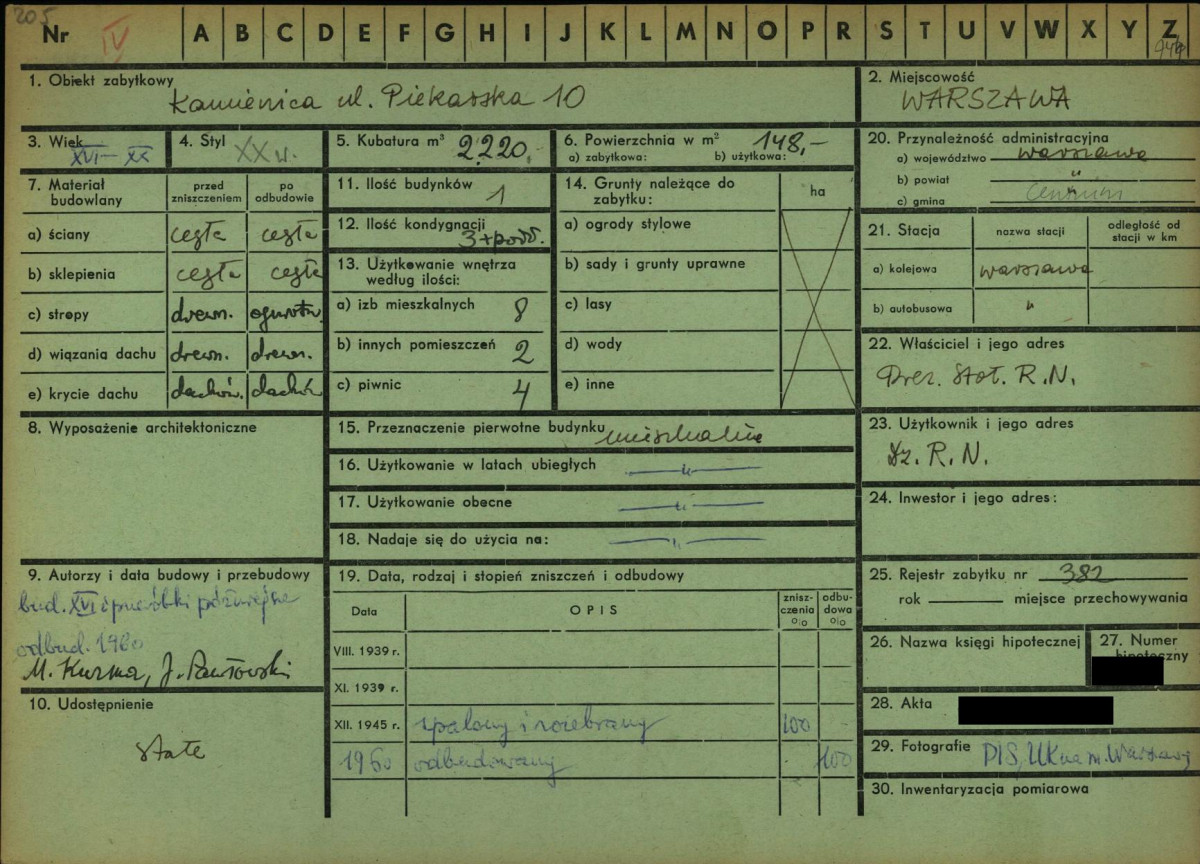 205
Nr IV A B C D E F G H I J K L M N O P R S T U V W X Y Z
1. Obiekt zabytkowy
Kamienica ul. Piekarska 10
2. Miejscowość
WARSZAWA
3. Wiek
XVI–XX
4. Styl
XX w.
5. Kubatura m³ 2220,
6. Powierzchnia w m² 148,–
a) zabytkowa: b) użytkowa:
20. Przynależność administracyjna
a) województwo warszawa
b) powiat "
c) gmina
7. Materiał budowlany
przed zniszczeniem
po odbudowie
a) ściany cegła cegła
b) sklepienia cegła cegła
c) stropy drewn. ogniotrw.
d) wiązania dachu drewn. drewn.
e) krycie dachu dachów. dachów
11. Ilość budynków
1
12. Ilość kondygnacji
3+podd.
13. Użytkowanie wnętrza według ilości:
a) izb mieszkalnych 8
b) innych pomieszczeń 2
c) piwnic 4
14. Grunty należące do zabytku:
ha
a) ogrody stylowe
b) sady i grunty uprawne
c) lasy
d) wody
e) inne
21. Stacja
nazwa stacji
odległość od stacji w km
a) kolejowa warszawa
b) autobusowa "
22. Właściciel i jego adres
Prez. Stoł. R.N.
8. Wyposażenie architektoniczne
15. Przeznaczenie pierwotne budynku mieszkalne
16. Użytkowanie w latach ubiegłych — " —
17. Użytkowanie obecne — " —
18. Nadaje się do użycia na: — " —
23. Użytkownik i jego adres
Dz. R.N.
24. Inwestor i jego adres:
9. Autorzy i data budowy i przebudowy
bud. XVI i przeróbki późniejsze
odbud. 1960
M. Kuzma, J. Pawłowski
10. Udostępnienie
stałe
19. Data, rodzaj i stopień zniszczeń i odbudowy
Data
OPIS
zniszczenia %
odbudowa %
VIII. 1939 r.
XI. 1939 r.
XII. 1945 r. spalony i rozebrany 100 -
1960 odbudowany 100
25. Rejestr zabytku nr 382
rok miejsce przechowywania
26. Nazwa księgi hipotecznej
27. Numer hipoteczny
28. Akta
29. Fotografie PIS, UK na m. Warszawę
30. Inwentaryzacja pomiarowa